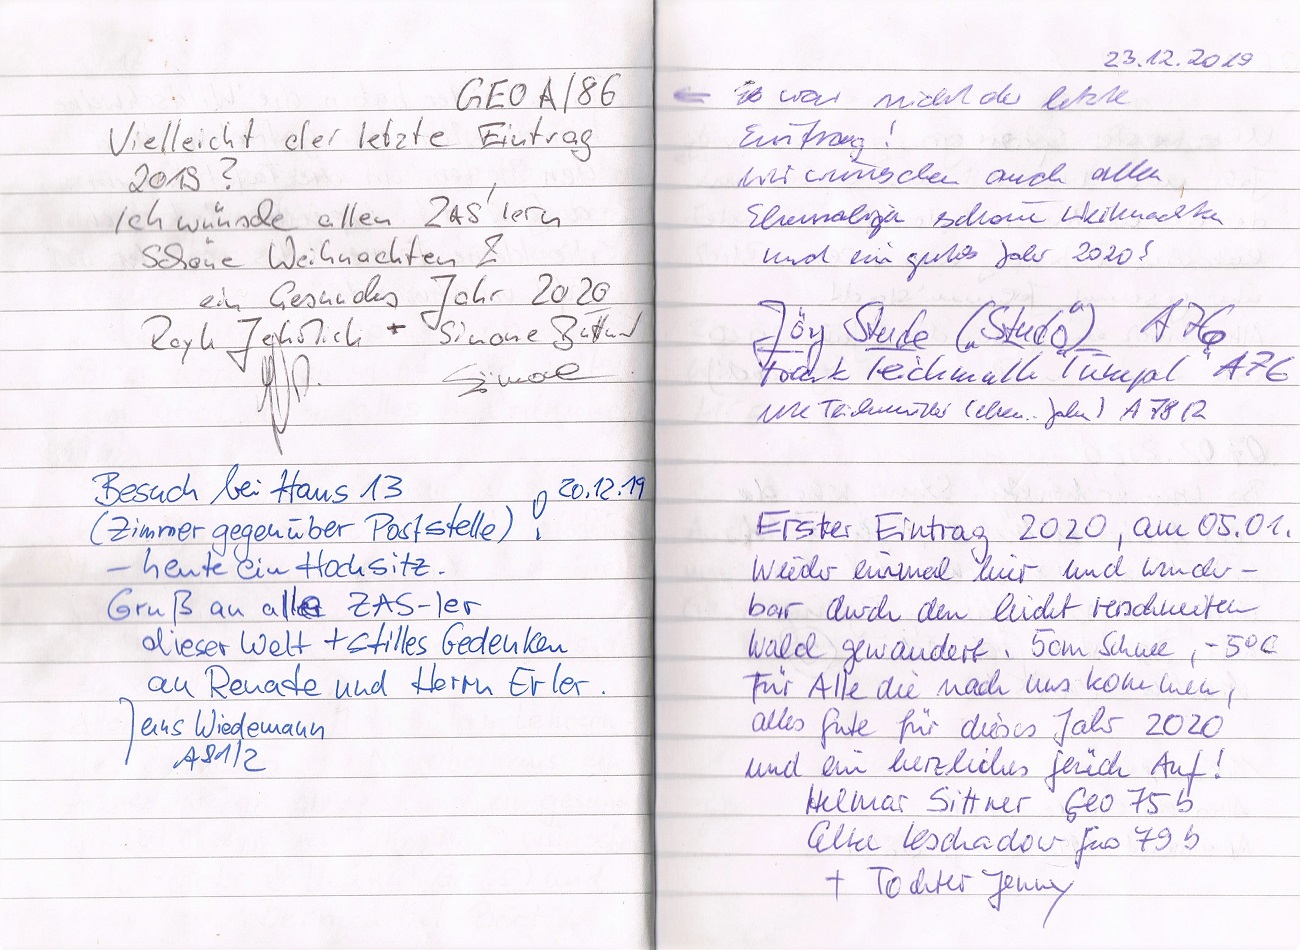 GEO A/86
Vielleicht der letzte Eintrag
2019?
Ich wünsche allen ZAS'lern
Schöne Weihnachten &
ein Gesundes Jahr 2020
+ Simone
Besuch bei Haus 13 20.12.19
(Zimmer gegenüber Poststelle) !
– heute ein Hochsitz.
Gruß an alle ZAS-ler
dieser Welt + stilles Gedenken
an Renate und Herrn Erler.
Jens Wiedemann
A81/2
23.12.2019
← Es war nicht der letzte
Eintrag!
Wir wünschen auch allen
Ehemaligen schöne Weihnachten
und ein gutes Jahr 2020!
Jörg Stude („Studo“) A76
Frank Teichmüller „Tümpel“ A76
Teichmüller (ehem. Jahn) A78/2
Erster Eintrag 2020, am 05.01.
Wieder einmal hier und wunder-
bar durch den leicht verschneiten
Wald gewandert. 5cm Schnee, -5°C
Für Alle die nach uns kommen,
alles Gute für dieses Jahr 2020
und ein herzliches Glück Auf!
Helmar Sittner Geo 75 b
Geo 79 b
+ Tochter Jenny